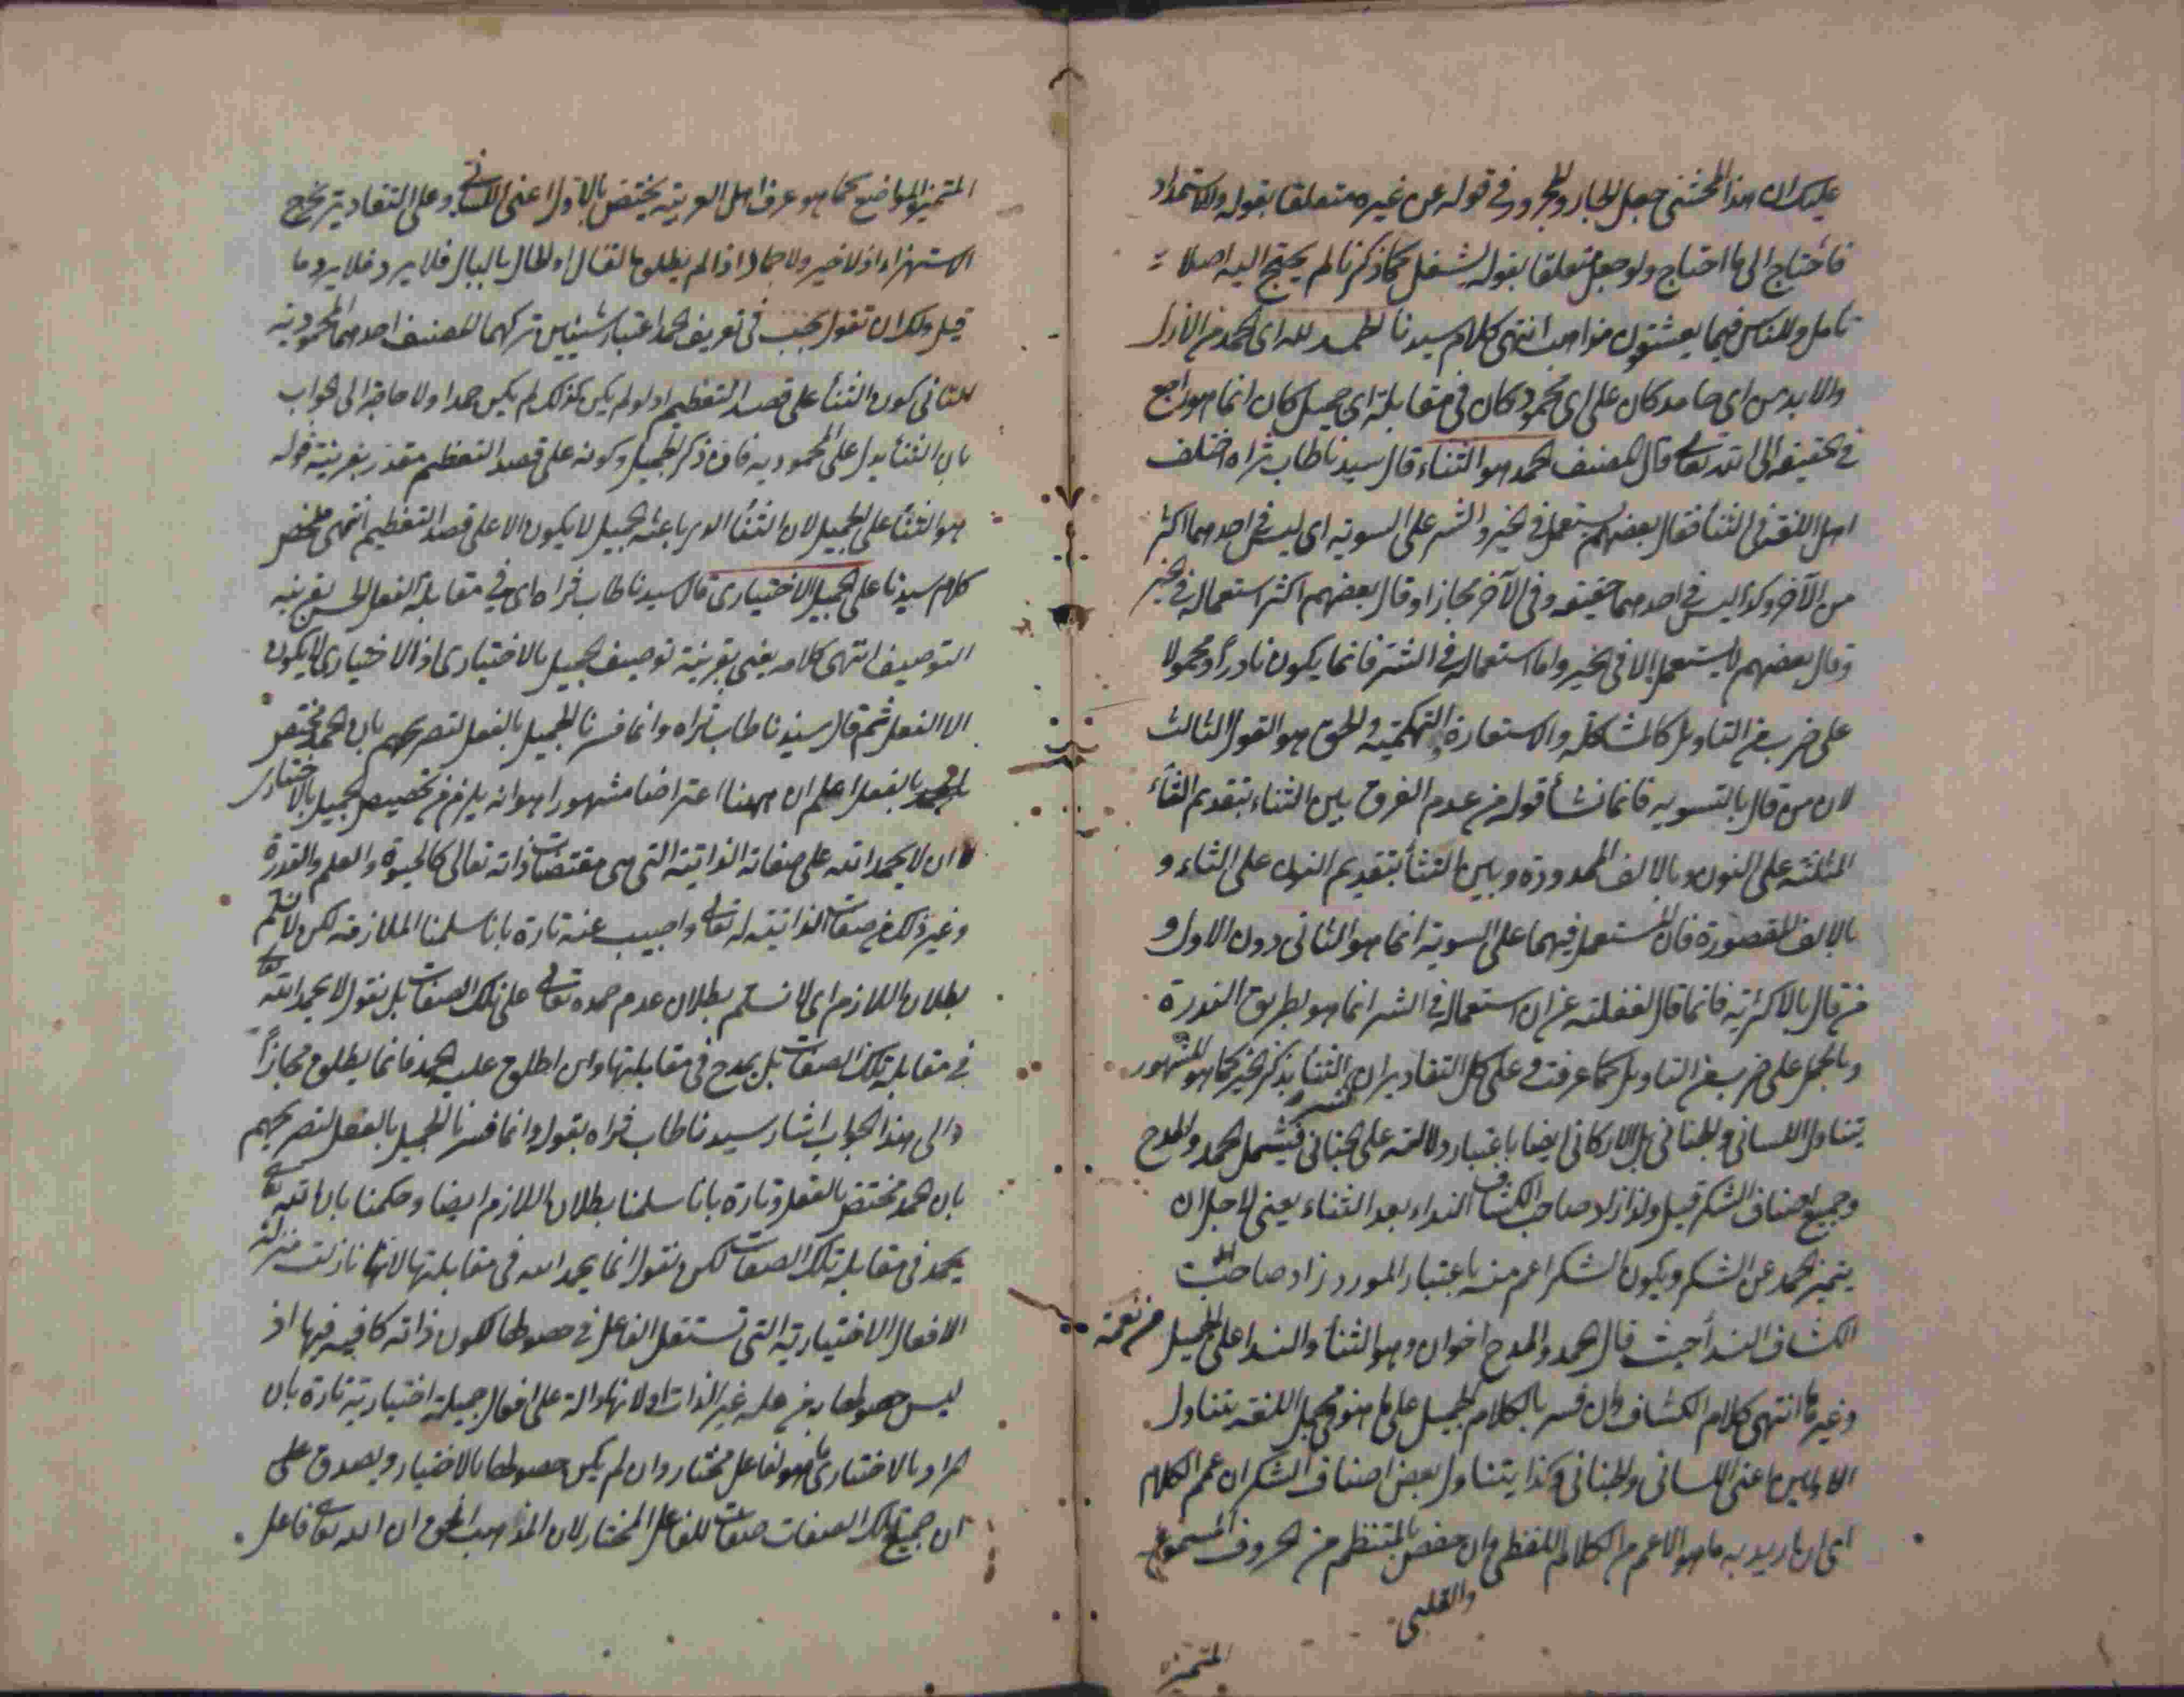 عليك ان هذا المحشي جعل الجار والمجرور في قوله عن غيره متعلقا بقوله والاستمداد
فاحتاج الى ما احتاج ولو جعل متعلقا بقوله يشغل كما ذكرنا لم يحتج اليه اصلا
تأمل وللناس فيما يعشقون مذاهب انتهى كلام سيدنا الحمد لله اى الحمد من الازل
والابد من اى حامد كان على اى محمود كان في مقابلة اى جميل كان انما هو راجع
في الحقيقة الى الله تعالى قال المصنف الحمد هو الثناء قال سيدنا طاب ثراه اختلف
اهل اللغة في الثناء فقال بعضهم يستعمل في الخير والشر على السوية اى ليس في احدهما اكثر
من الآخر وكذا ليس في احدهما حقيقة وفي الآخر مجازا وقال بعضهم اكثر استعماله في الخير
وقال بعضهم لا يستعمل الا في الخير واما استعماله في الشر فانما يكون نادرا او محمولا
على ضرب من التأويل كالمشاكلة والاستعارة التهكمية والحق هو القول الثالث
لان من قال بالتسوية فانما نشأ قوله من عدم الفرق بين الثناء بتقديم الثاء
المثلثة على النون وبالالف الممدودة وبين النثا بتقديم النون على الثاء و
بالالف المقصورة فان المستعمل فيهما على السوية انما هو الثاني دون الاول و
من قال بالاكثرية فانما قال لغفلته عن ان استعماله في الشر انما هو بطريق الندرة
وبالحمل على ضرب من التاويل كما عرفت وعلى كل التقادير ان الثناء بذكر الخير كما هو المشهور
يتناول اللساني والجناني بل الاركاني ايضا باعتبار دلالته على الجناني فيشمل الحمد والمدح
وجميع اصناف الشكر قيل ولذا زاد صاحب الكشاف النداء بعد الثناء يعني لاجل ان
يتميز الحمد عن الشكر ويكون الشكر اعم منه باعتبار المورد زاد صاحب
الكشاف النداء حيث قال الحمد والمدح اخوان وهو الثناء والنداء على الجميل من نعمة
وغيرها انتهى كلام الكشاف وان فسر بالكلام الجميل على ما هو في مجمل اللغة يتناول
الاولين اعنى اللساني والجناني وكذا يتناول بعض اصناف الشكر ان عمم الكلام
اى ان اريد به ما هو الاعم من الكلام اللفظي وان خص بالمنتظم من الحروف المسموعة
والقلبي
المتميزة
المتميزة المواضع كما هو عرف اهل العربية يختص بالاول اعنى اللساني وعلى التقادير يخرج
الاستهزاء اذ لا خير ولا جمال اذا لم يطلق بالقال او الحال بالبال فلا يرد فلا يرد ما
قيل ولك ان تقول يجب في تعريف الحمد اعتبار شيئين تركهما المصنف احدهما المحمود به
الثاني كون الثناء على قصد التعظيم اذ لو لم يكن كذلك لم يكن حمدا ولا حاجة الى الجواب
بان الثناء يدل على المحمود به فان ذكر الجميل وكونه على قصد التعظيم مقدر بقرينة قوله
هو الثناء على الجميل لان الثناء الذى باعثه الجميل لا يكون الا على قصد التعظيم انتهى ملخص
كلام سيدنا على الجميل الاختيارى قال سيدنا طاب ثراه اى في مقابلة الفعل الحسن بقرينة
التوصيف انتهى كلامه يعنى بقرينة توصيف الجميل بالاختيارى اذ الاختيارى لا يكون
الا الفعل ثم قال سيدنا طاب ثراه وانما فسرنا الجميل بالفعل لتصريحهم بان الحمد مختص
بالفعل اعلم ان ههنا اعتراضا مشهورا هو انه يلزم من تخصيص الجميل بالاختيارى
ان لا يحمد الله على صفاته الذاتية التى هى مقتضيات ذاته تعالى كالحيوة والعلم والقدرة
وغير ذلك من صفات الذاتية له تعالى واجيب عنه تارة بانا سلمنا الملازمة لكن لا نسلم
بطلان اللازم اى لا نسلم بطلان عدم حمده تعالى على تلك الصفات بل نقول لا يحمد الله تعالى
في مقابلة تلك الصفات بل يمدح في مقابلتها وان اطلق عليه الحمد فانما يطلق مجازاً
والى هذا الجواب اشار سيدنا طاب ثراه بقوله وانما فسرنا الجميل بالفعل لتصريحهم
بان الحمد مختص بالفعل وتارة بانا سلمنا بطلان اللازم ايضا وحكمنا بان الله تعالى
يحمد في مقابلة تلك الصفات لكن نقول انما يحمد الله في مقابلتها لانها نازلت منزلة
الافعال الاختيارية التى تستقل الفاعل في حصولها لكون ذاته كافية فيها اذ
ليس حصولها من علة غير الذات او لانها دالة على افعال جميلة اختيارية تارة بان
المراد بالاختيارى ما هو لفاعل مختار وان لم يكن حصولها بالاختيار ويصدق على
ان جميع تلك الصفات صفات للفاعل المختار لان المذهب الحق ان الله تعالى فاعل